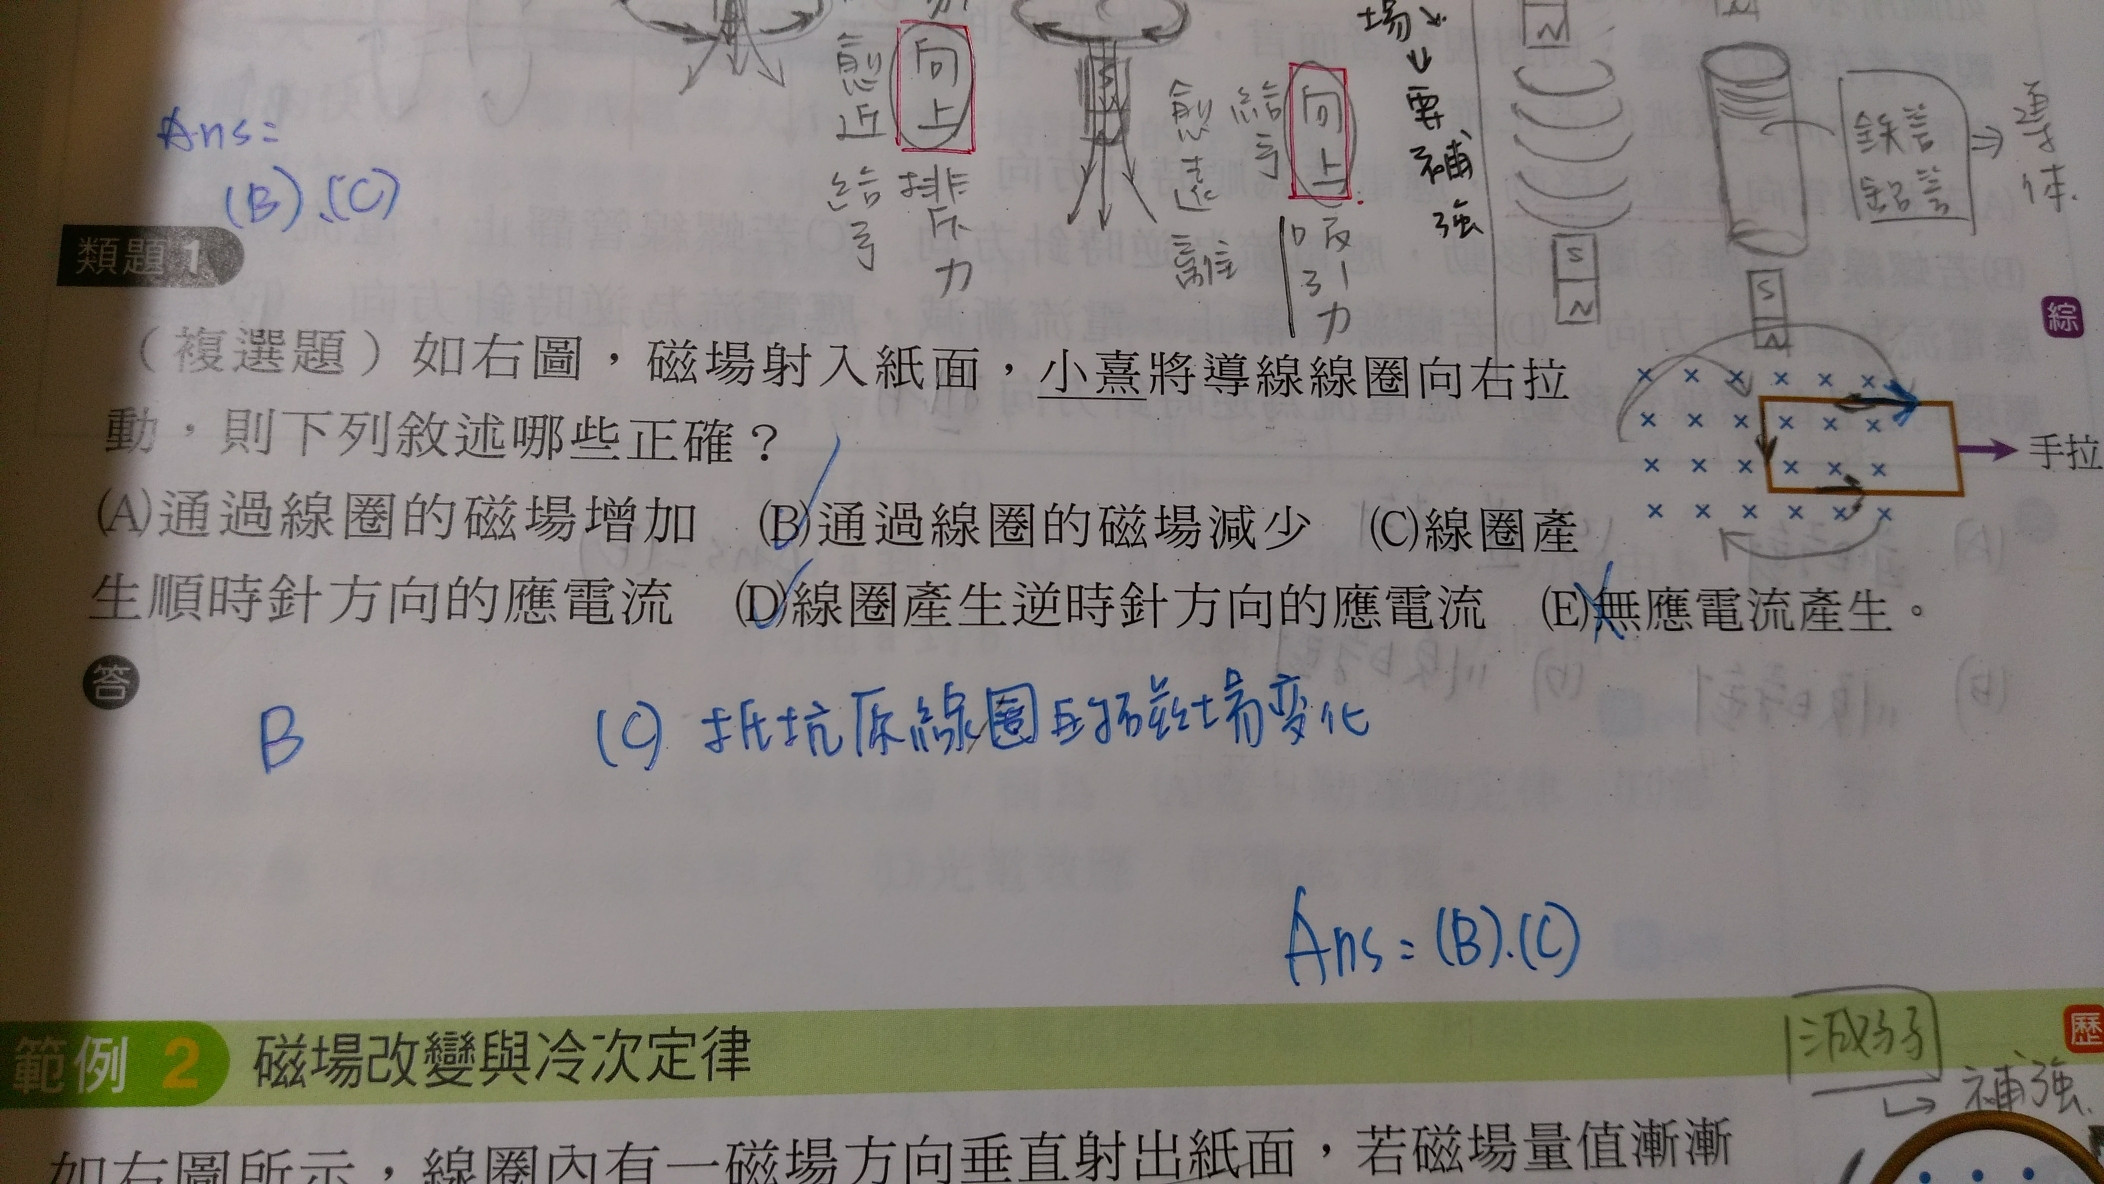 向
愈
近
上
給
予
排
斥
力
愈
遠
離
給
予
向
上
吸
引
力
場
要
補
強
N
S
N
S
N
鐵管
鋁管
導
体.
Ans=
(B).(C)
類題 1
綜
（複選題）如右圖，磁場射入紙面，小熹將導線線圈向右拉
動，則下列敘述哪些正確？
手拉
(A)通過線圈的磁場增加 (B)通過線圈的磁場減少 (C)線圈產
生順時針方向的應電流 (D)線圈產生逆時針方向的應電流 (E)無應電流產生。
答
B (C) 抵抗原線圈的磁場變化
Ans=(B).(C)
減弱
補強.
歷
範例 2 磁場改變與冷次定律
如右圖所示，線圈內有一磁場方向垂直射出紙面，若磁場量值漸漸